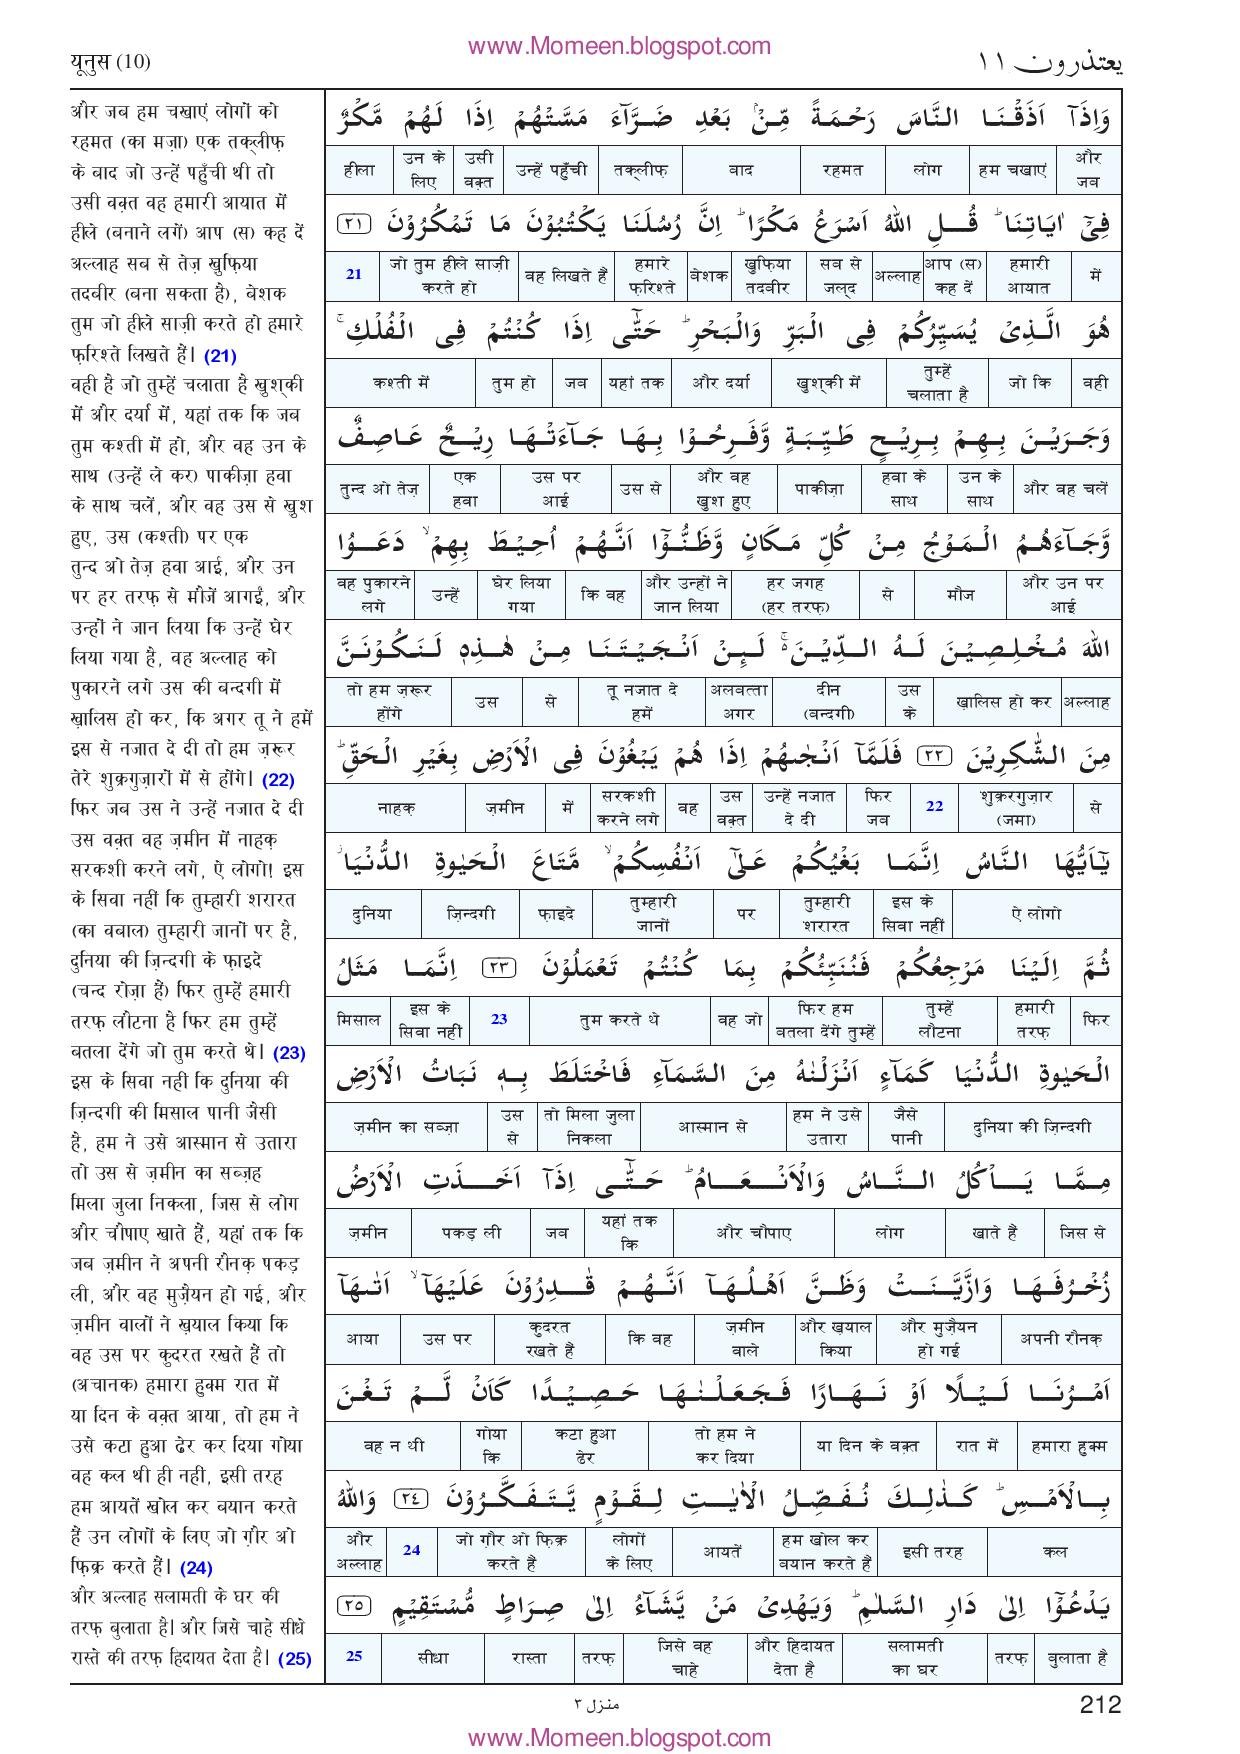 www.Momeen.blogspot.com
यूनुस (10)
یعتذرون ١١
और जब हम चखाएं लोगों को
रहमत (का मज़ा) एक तक्लीफ़
के बाद जो उन्हें पहुँची थी तो
उसी वक़्त वह हमारी आयात में
हीले (बनाने लगें) आप (स) कह दें
अल्लाह सब से तेज़ ख़ुफ़िया
तदबीर (बना सकता है), बेशक
तुम जो हीले साज़ी करते हो हमारे
फ़रिश्ते लिखते हैं। (21)
वही है जो तुम्हें चलाता है ख़ुश्की
में और दर्या में, यहां तक कि जब
तुम कश्ती में हो, और वह उन के
साथ (उन्हें ले कर) पाकीज़ा हवा
के साथ चलें, और वह उस से ख़ुश
हुए, उस (कश्ती) पर एक
तुन्द ओ तेज़ हवा आई, और उन
पर हर तरफ़ से मौजें आगईं, और
उन्हों ने जान लिया कि उन्हें घेर
लिया गया है, वह अल्लाह को
पुकारने लगे उस की बन्दगी में
ख़ालिस हो कर, कि अगर तू ने हमें
इस से नजात दे दी तो हम ज़रूर
तेरे शुक्रगुज़ारों में से होंगे। (22)
फिर जब उस ने उन्हें नजात दे दी
उस वक़्त वह ज़मीन में नाहक़
सरकशी करने लगे, ऐ लोगो! इस
के सिवा नहीं कि तुम्हारी शरारत
(का वबाल) तुम्हारी जानों पर है,
दुनिया की ज़िन्दगी के फ़ाइदे
(चन्द रोज़ा हैं) फिर तुम्हें हमारी
तरफ़ लौटना है फिर हम तुम्हें
बतला देंगे जो तुम करते थे। (23)
इस के सिवा नहीं कि दुनिया की
ज़िन्दगी की मिसाल पानी जैसी
है, हम ने उसे आस्मान से उतारा
तो उस से ज़मीन का सब्ज़ह
मिला जुला निकला, जिस से लोग
और चौपाए खाते हैं, यहां तक कि
जब ज़मीन ने अपनी रौनक़ पकड़
ली, और वह मुज़ैयन हो गई, और
ज़मीन वालों ने ख़याल किया कि
वह उस पर क़ुदरत रखते हैं तो
(अचानक) हमारा हुक्म रात में
या दिन के वक़्त आया, तो हम ने
उसे कटा हुआ ढेर कर दिया गोया
वह कल थी ही नहीं, इसी तरह
हम आयतें खोल कर बयान करते
हैं उन लोगों के लिए जो ग़ौर ओ
फ़िक्र करते हैं। (24)
और अल्लाह सलामती के घर की
तरफ़ बुलाता है। और जिसे चाहे सीधे
रास्ते की तरफ़ हिदायत देता है। (25)
وَاِذَآ اَذَقْنَا النَّاسَ رَحْمَةً مِّنْۢ بَعْدِ ضَرَّآءَ مَسَّتْهُمْ اِذَا لَهُمْ مَّكْرٌ
और जब हम चखाएं लोग रहमत बाद तक्लीफ़ उन्हें पहुँची उसी वक़्त उन के लिए हीला
فِىْٓ اٰيَاتِنَا ؕ قُلِ اللّٰهُ اَسْرَعُ مَكْرًا ؕ اِنَّ رُسُلَنَا يَكْتُبُوْنَ مَا تَمْكُرُوْنَ ٢١
में हमारी आयात आप (स) कह दें अल्लाह सब से जल्द ख़ुफ़िया तदबीर बेशक हमारे फ़रिश्ते वह लिखते हैं जो तुम हीले साज़ी करते हो 21
هُوَ الَّذِىْ يُسَيِّرُكُمْ فِى الْبَرِّ وَالْبَحْرِ ؕ حَتّٰٓى اِذَا كُنْتُمْ فِى الْفُلْكِ ۚ
वही जो कि तुम्हें चलाता है ख़ुश्की में और दर्या यहां तक जब तुम हो कश्ती में
وَجَرَيْنَ بِهِمْ بِرِيْحٍ طَيِّبَةٍ وَّفَرِحُوْا بِهَا جَآءَتْهَا رِيْحٌ عَاصِفٌ
और वह चलें उन के साथ हवा के साथ पाकीज़ा और वह ख़ुश हुए उस से उस पर आई एक हवा तुन्द ओ तेज़
وَّجَآءَهُمُ الْمَوْجُ مِنْ كُلِّ مَكَانٍ وَّظَنُّوْٓا اَنَّهُمْ اُحِيْطَ بِهِمْ ۙ دَعَوُا
और उन पर आई मौज से हर जगह (हर तरफ़) और उन्हों ने जान लिया कि वह घेर लिया गया उन्हें वह पुकारने लगे
اللّٰهَ مُخْلِصِيْنَ لَهُ الدِّيْنَ ۚ لَىِٕنْ اَنْجَيْتَنَا مِنْ هٰذِهٖ لَنَكُوْنَنَّ
अल्लाह ख़ालिस हो कर उस के दीन (बन्दगी) अलबत्ता अगर तू नजात दे हमें से उस तो हम ज़रूर होंगे
مِنَ الشّٰكِرِيْنَ ٢٢ فَلَمَّآ اَنْجٰىهُمْ اِذَا هُمْ يَبْغُوْنَ فِى الْاَرْضِ بِغَيْرِ الْحَقِّ ؕ
से शुक्रगुज़ार (जमा) 22 फिर जब उन्हें नजात दे दी उस वक़्त वह सरकशी करने लगे में ज़मीन नाहक़
يٰٓاَيُّهَا النَّاسُ اِنَّمَا بَغْيُكُمْ عَلٰٓى اَنْفُسِكُمْ ۙ مَّتَاعَ الْحَيٰوةِ الدُّنْيَا ۫
ऐ लोगो इस के सिवा नहीं तुम्हारी शरारत पर तुम्हारी जानों फ़ाइदे ज़िन्दगी दुनिया
ثُمَّ اِلَيْنَا مَرْجِعُكُمْ فَنُنَبِّئُكُمْ بِمَا كُنْتُمْ تَعْمَلُوْنَ ٢٣ اِنَّمَا مَثَلُ
फिर हमारी तरफ़ तुम्हें लौटना फिर हम बतला देंगे तुम्हें वह जो तुम करते थे 23 इस के सिवा नहीं मिसाल
الْحَيٰوةِ الدُّنْيَا كَمَآءٍ اَنْزَلْنٰهُ مِنَ السَّمَآءِ فَاخْتَلَطَ بِهٖ نَبَاتُ الْاَرْضِ
दुनिया की ज़िन्दगी जैसे पानी हम ने उसे उतारा आस्मान से तो मिला जुला निकला उस से ज़मीन का सब्ज़ा
مِمَّا يَاْكُلُ النَّاسُ وَالْاَنْعَامُ ؕ حَتّٰٓى اِذَآ اَخَذَتِ الْاَرْضُ
जिस से खाते हैं लोग और चौपाए यहां तक कि जब पकड़ ली ज़मीन
زُخْرُفَهَا وَازَّيَّنَتْ وَظَنَّ اَهْلُهَآ اَنَّهُمْ قٰدِرُوْنَ عَلَيْهَآ ۙ اَتٰىهَآ
अपनी रौनक़ और मुज़ैयन हो गई और ख़याल किया ज़मीन वाले कि वह क़ुदरत रखते हैं उस पर आया
اَمْرُنَا لَيْلًا اَوْ نَهَارًا فَجَعَلْنٰهَا حَصِيْدًا كَاَنْ لَّمْ تَغْنَ
हमारा हुक्म रात में या दिन के वक़्त तो हम ने कर दिया कटा हुआ ढेर गोया कि वह न थी
بِالْاَمْسِ ؕ كَذٰلِكَ نُفَصِّلُ الْاٰيٰتِ لِقَوْمٍ يَّتَفَكَّرُوْنَ ٢٤ وَاللّٰهُ
कल इसी तरह हम खोल कर बयान करते हैं आयतें लोगों के लिए जो ग़ौर ओ फ़िक्र करते हैं 24 और अल्लाह
يَدْعُوْٓا اِلٰى دَارِ السَّلٰمِ ؕ وَيَهْدِىْ مَنْ يَّشَآءُ اِلٰى صِرَاطٍ مُّسْتَقِيْمٍ ٢٥
बुलाता है तरफ़ सलामती का घर और हिदायत देता है जिसे वह चाहे तरफ़ रास्ता सीधा 25
منزل ٣
212
www.Momeen.blogspot.com